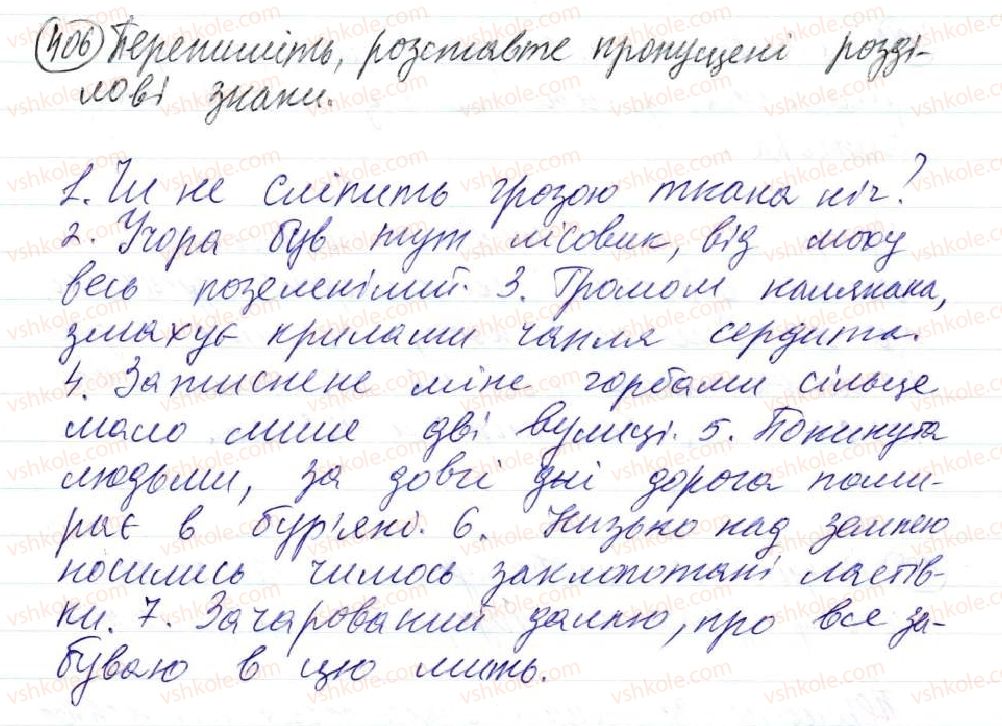 406 Перепишіть, розставте пропущені розді-
лові знаки.
1. Чи не сліпить грозою ткана ніч?
2. Учора був тут лісовик, від моху
весь позеленілий. 3. Громом налякана,
змахує крилами чапля сердита.
4. Затиснене між горбами сільце
мало лише дві вулиці. 5. Покинута
людьми, за довгі дні дорога поми-
рає в бур'яні. 6. Низько над землею
носились чимось заклопотані ластів-
ки. 7. Зачарований далллю, про все за-
буваю в цю мить.